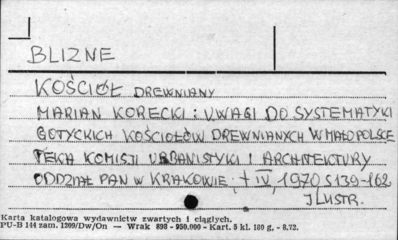 BLIZNE
KOŚCIÓŁ DREWNIANY
MARIAN KORECKI: UWAGI DO SYSTEMATYKI
GOTYCKICH KOŚCIOŁÓW DREWNIANYCH W MAŁOPOLSCE
TEKA KOMISJI URBANISTYKI I ARCHITEKTURY
ODDZIAŁ PAN W KRAKOWIE, t IV, 1970 S 139-162
ILUSTR.
Karta katalogowa wydawnictw zwartych i ciągłych.
PU-B 144 zam. 1209/Dw/On — Wrak 898 - 950.000 - Kart. 5 kl. 180 g. - 8.72.